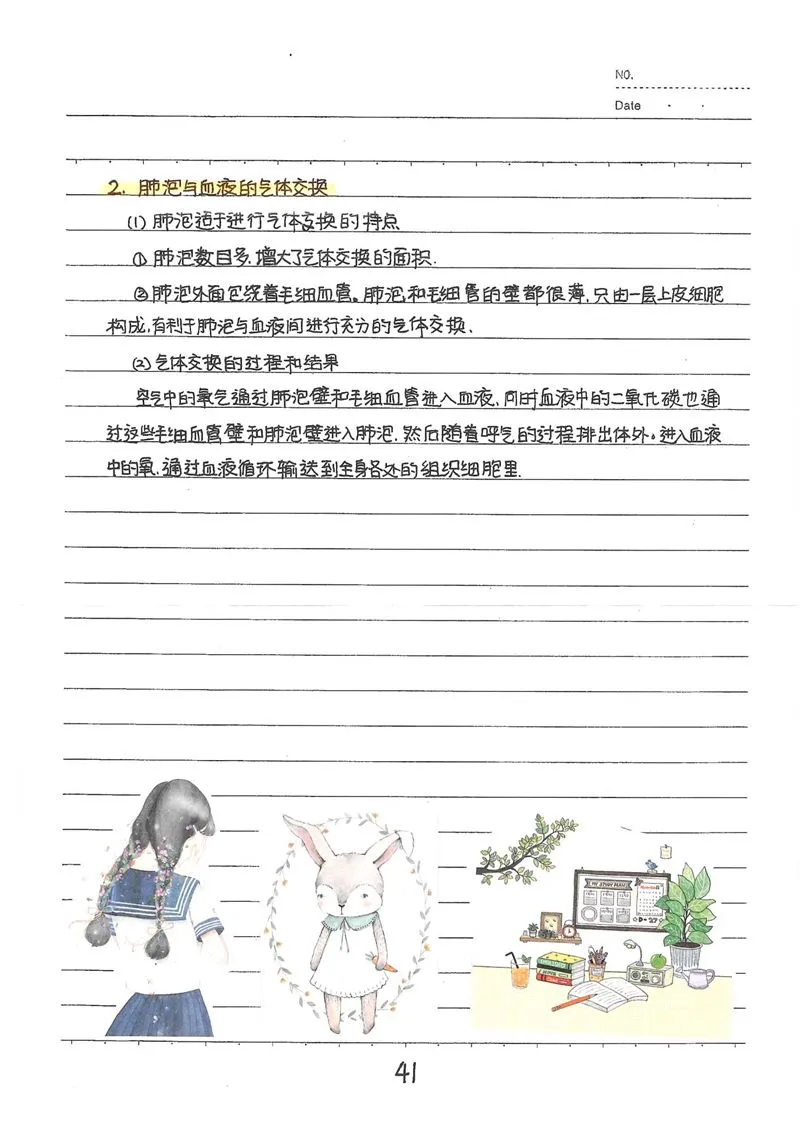 NO.
Date
2. 肺泡与血液的气体交换
(1) 肺泡适于进行气体交换的特点
① 肺泡数目多,增大了气体交换的面积.
②肺泡外面包绕着毛细血管。肺泡和毛细管的壁都很薄,只由一层上皮细胞
构成,有利于肺泡与血液间进行充分的气体交换.
(2) 气体交换的过程和结果
空气中的氧气通过肺泡壁和毛细血管进入血液,同时血液中的二氧化碳也通
过这些毛细血管壁和肺泡壁进入肺泡,然后随着呼气的过程排出体外。进入血液
中的氧,通过血液循环输送到全身各处的组织细胞里.
MY STUDY PLAN
D-27
41